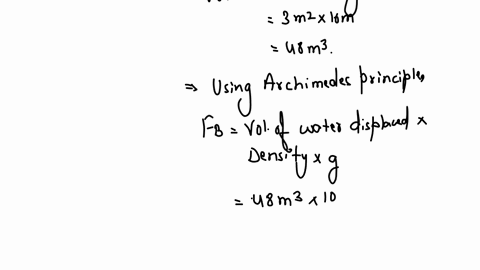 = 3m² × 16m
= 48m³.
⇒ Using Archimedes principle,
FB = Vol. of water displaced ×
Density × g
= 48m³ × 10